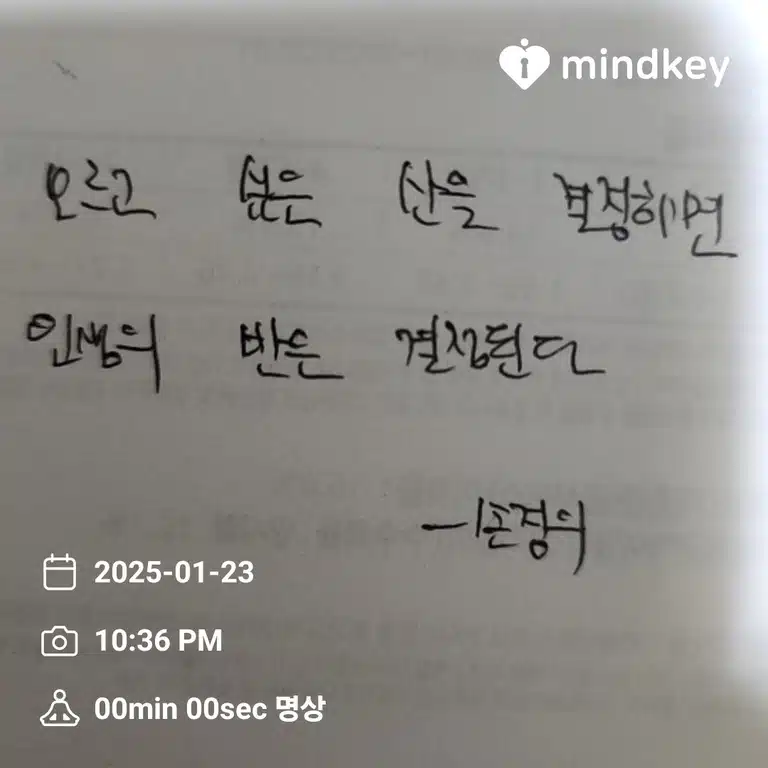 mindkey
오르고 싶은 산을 결정하면
인생의 반은 결정된다
- 손정의
2025-01-23
10:36 PM
00min 00sec 명상